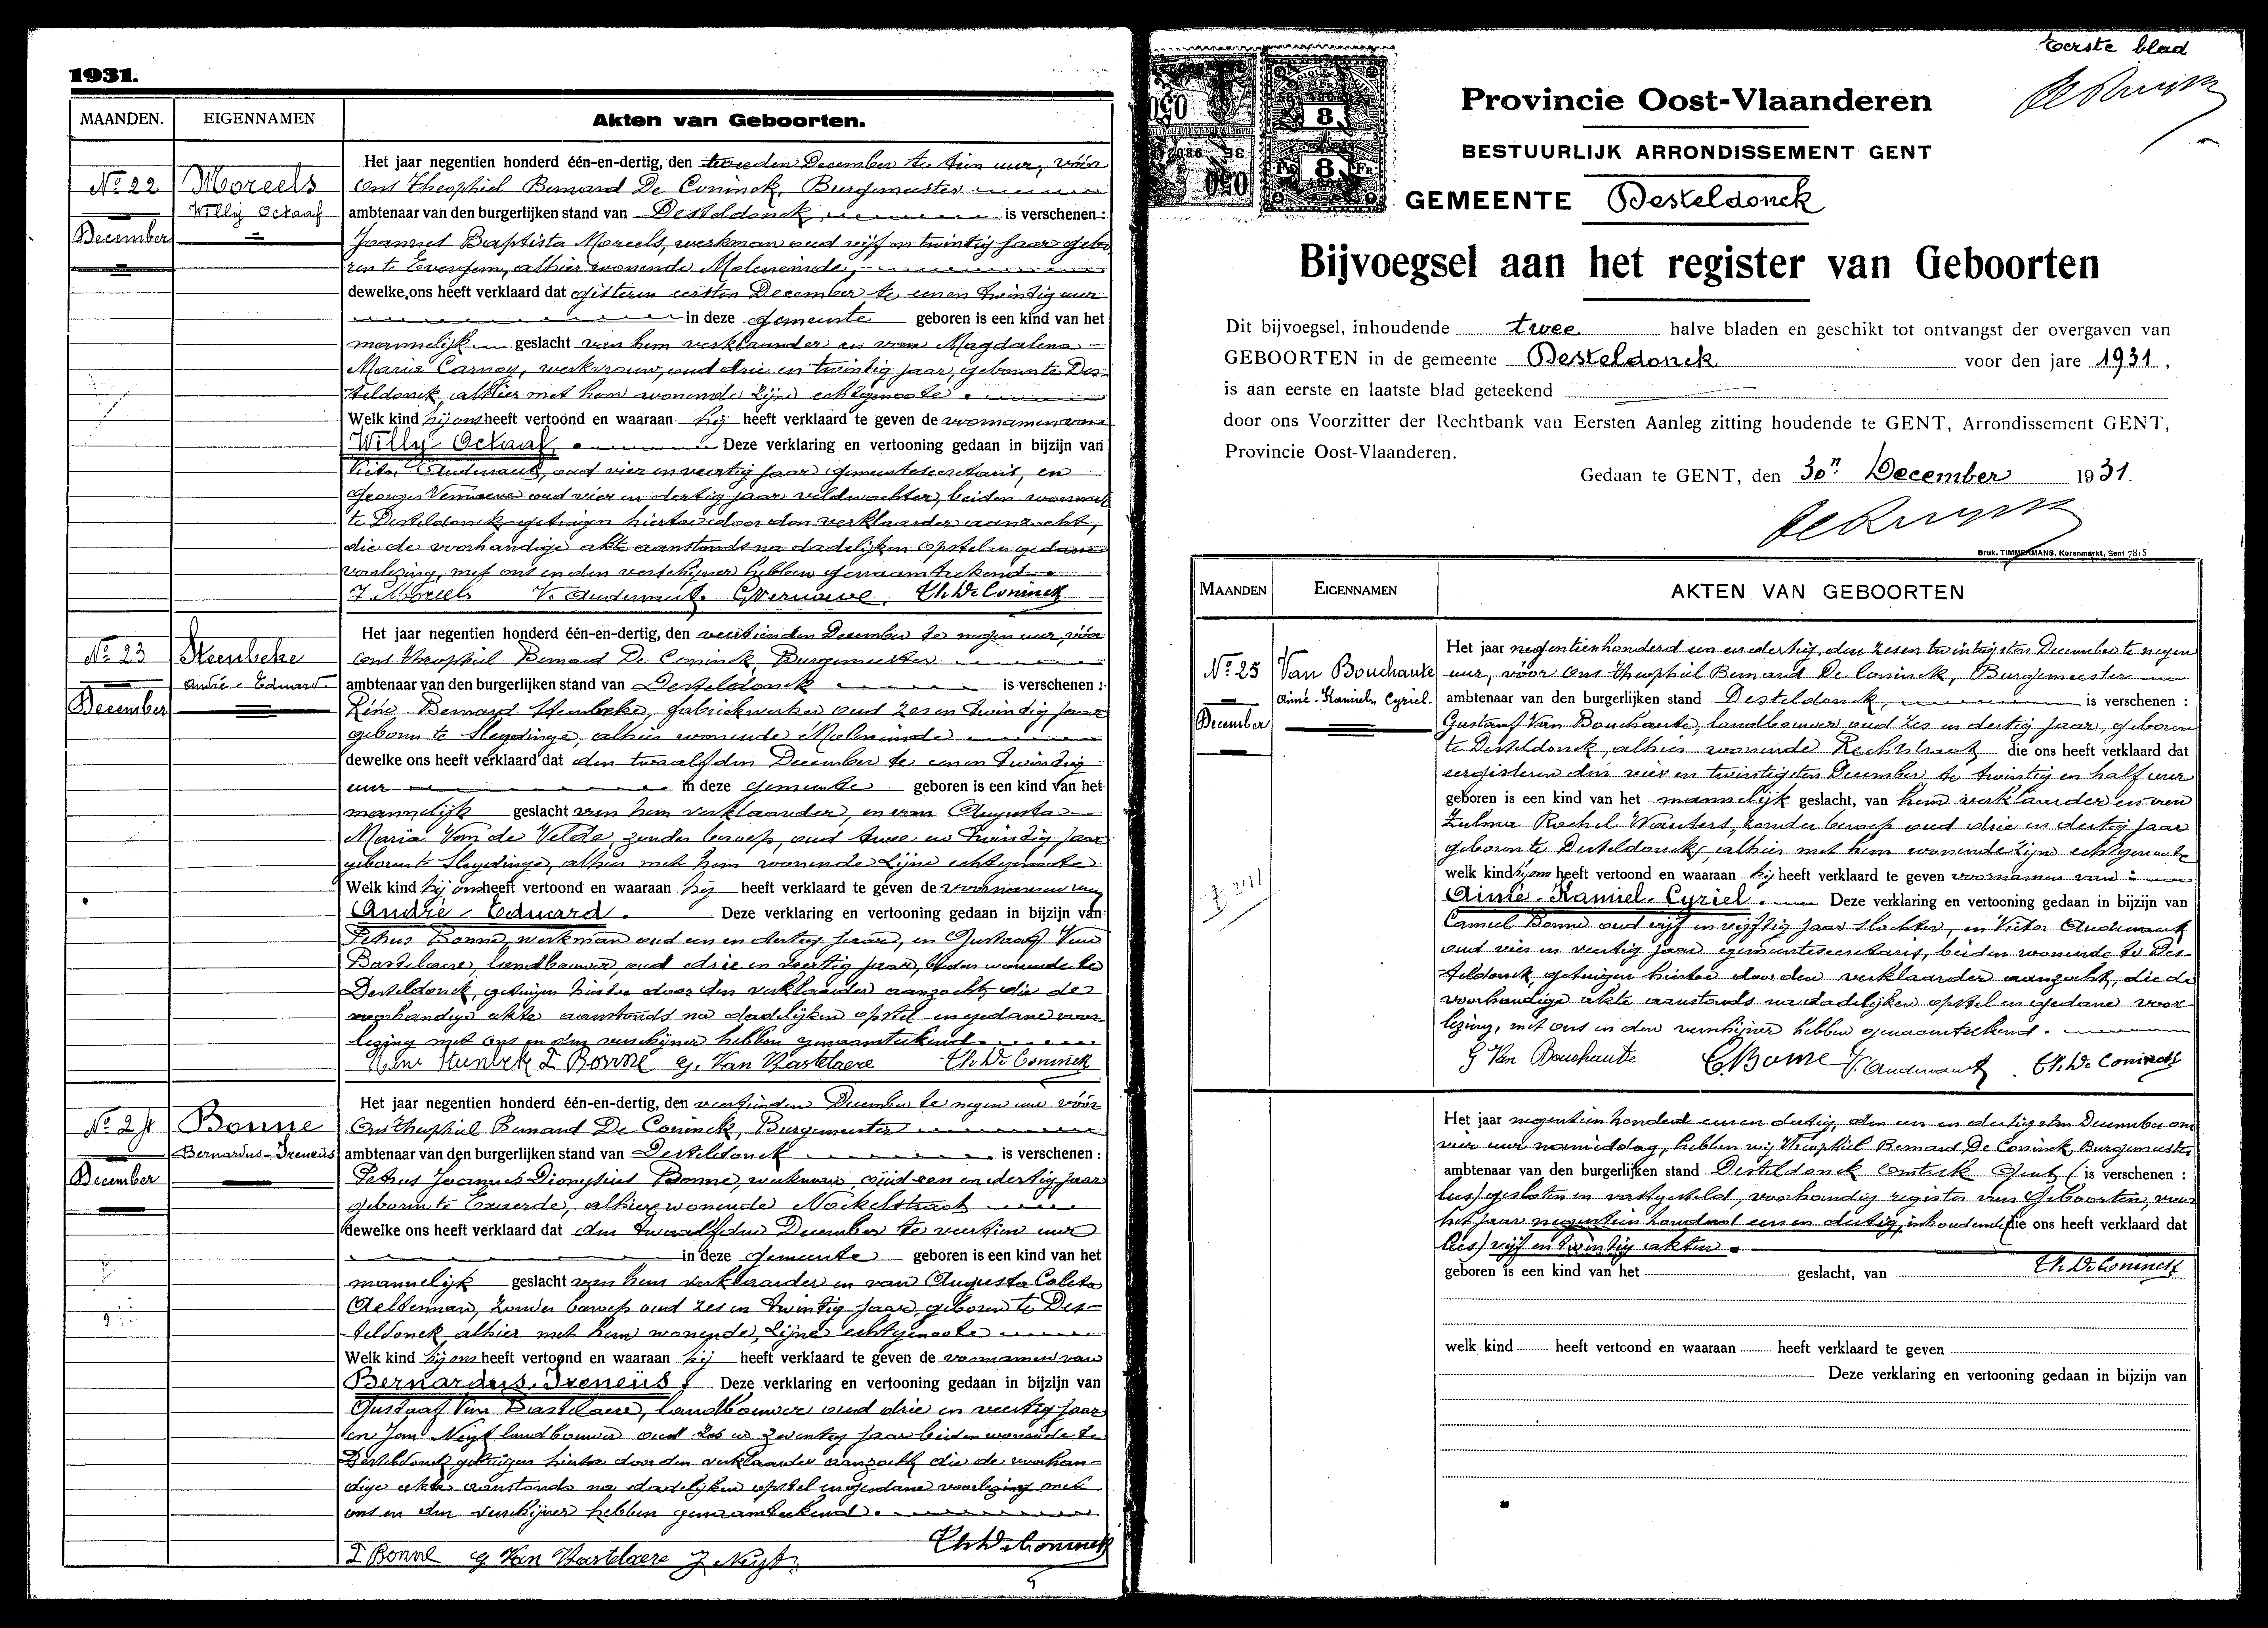 1931.
MAANDEN.
EIGENNAMEN
Akten van Geboorten.
No 22
Moreels
Willy Octaaf
December
Het jaar negentien honderd één-en-dertig, den tweeden December te tien uur, vóór
Ons Theophiel Bernard De Coninck, Burgemeester
ambtenaar van den burgerlijken stand van Desteldonck is verschenen :
Joannes Baptista Moreels, werkman oud vijf en twintig jaar gebo
ren te Evergem, alhier wonende Moleneinde,
dewelke ons heeft verklaard dat gisteren eersten December te eenen twintig uur
in deze gemeente geboren is een kind van het
mannelijk geslacht van hem verklaarder en van Magdalena
Maria Carnoy, werkvrouw, oud drie en twintig jaar, geboren te Des-
teldonck, alhier met hem wonende zijne echtgenoote.
Welk kind hij ons heeft vertoond en waaraan hij heeft verklaard te geven de voornamen van
Willy-Octaaf. Deze verklaring en vertooning gedaan in bijzijn van
Victor Audenaert, oud vier en veertig jaar gemeentesecretaris, en
Georges Vernaeve oud vier en dertig jaar veldwachter, beiden wonende
te Desteldonck getuigen hiertoe door den verklaarder aanzocht,
die de voorhandige akte aanstonds na dadelijken opstel en gedane
voorlezing, met ons en den verschijner hebben genaamteekend.
J. Moreels V. Audenaert. G Vernaeve. Th. De Coninck
No 23
Steenbeke
André-Eduard
December
Het jaar negentien honderd één-en-dertig, den veertienden December te negen uur, vóór
Ons Theophiel Bernard De Coninck, Burgemeester
ambtenaar van den burgerlijken stand van Desteldonck is verschenen :
Réné Bernard Steenbeke, fabriekwerker oud zes en twindig jaar
geboren te Sleydinge, alhier wonende Moleneinde
dewelke ons heeft verklaard dat den twaalfden December te eenen twindig
uur in deze gemeente geboren is een kind van het
mannelijk geslacht van hem verklaarder, en van Augusta
Maria Van de Velde, zonder beroep, oud twee en twindig jaar
geboren te Sleydinge, alhier met hem wonende zijne echtgenoote
Welk kind hij ons heeft vertoond en waaraan hij heeft verklaard te geven de voornamen van
André-Eduard. Deze verklaring en vertooning gedaan in bijzijn van
Petrus Bonne werkman oud een en dertig jaar, en Gustaaf Van
Bastelaere, landbouwer, oud drie en veertig jaar, beiden wonende te
Desteldonck, getuigen hiertoe door den verklaarder aanzocht, die de
voorhandige akte aanstonds na dadelijken opstel en gedane voor-
lezing met ons en den verschijner hebben genaamteekend.
P. Bonne G. Van Bastelaere Th. De Coninck
No 24
Bonne
Bernardus-Ireneüs
December
Het jaar negentien honderd één-en-dertig, den veertienden December te negen uur vóór
Ons Theophiel Bernard De Coninck, Burgemeester
ambtenaar van den burgerlijken stand van Desteldonck is verschenen :
Petrus Joannes Dionysius Bonne, werkman, oud een en dertig jaar
geboren te Exaerde, alhier wonende Nockelstraat
dewelke ons heeft verklaard dat den twaalfden December te veertien uur
in deze gemeente geboren is een kind van het
mannelijk geslacht van hem verklaarder en van Augusta Coleta
Aelterman, zonder beroep oud zes en twintig jaar, geboren te Des-
teldonck alhier met hem wonende, zijne echtgenoote
Welk kind hij ons heeft vertoond en waaraan hij heeft verklaard te geven de voornamen van
Bernardus, Ireneüs. Deze verklaring en vertooning gedaan in bijzijn van
Gustaaf Van Bastelaere, landbouwer oud drie en veertig jaar
en Jan Neyt landbouwer oud zes en zeventig jaar beiden wonende te
Desteldonck getuigen hiertoe door den verklaarder aanzocht die de voorhan-
dige akte aanstonds na dadelijken opstel en gedane voorlezing met
ons en den verschijner hebben genaamteekend.
Th. De Coninck
P Bonne G Van Bastelaere J. Neyt.
Eerste blad
8
8
Provincie Oost-Vlaanderen
BESTUURLIJK ARRONDISSEMENT GENT
GEMEENTE Desteldonck
Bijvoegsel aan het register van Geboorten
Dit bijvoegsel, inhoudende twee halve bladen en geschikt tot ontvangst der overgaven van
GEBOORTEN in de gemeente Desteldonck voor den jare 1931,
is aan eerste en laatste blad geteekend
door ons Voorzitter der Rechtbank van Eersten Aanleg zitting houdende te GENT, Arrondissement GENT,
Provincie Oost-Vlaanderen.
Gedaan te GENT, den 30n December 1931.
Druk. TIMMERMANS, Korenmarkt, Gent 7815
MAANDEN
EIGENNAMEN
AKTEN VAN GEBOORTEN
No 25
Van Bouchaute
Aimé-Kamiel-Cyriel.
December
Het jaar negentienhonderd een en dertig, den zesen twintigsten December te negen
uur, vóór Ons Theophiel Bernard De Coninck, Burgemeester
ambtenaar van den burgerlijken stand Desteldonck, is verschenen :
Gustaaf Van Bouchaute, landbouwer, oud zes en dertig jaar, geboren
te Desteldonck, alhier wonende Rechtstraat die ons heeft verklaard dat
eergisteren den vier en twintigsten December te twintig en half uur
geboren is een kind van het mannelijk geslacht, van hem verklaarder en van
Zulma Rachel Wauters, zonder beroep oud drie en dertig jaar
geboren te Desteldonck, alhier met hem wonende zijne echtgenoote
welk kind hij ons heeft vertoond en waaraan hij heeft verklaard te geven voornamen van :
Aimé-Kamiel-Cyriel. Deze verklaring en vertooning gedaan in bijzijn van
Camiel Bonne oud vijf en vijftig jaar slachter, en Victor Audenaert
oud vier en veertig jaar gemeentesecretaris, beiden wonende te Des-
teldonck, getuigen hiertoe door den verklaarder aanzocht, die de
voorhandige akte aanstonds na dadelijken opstel en gedane voor-
lezing, met ons en den verschijner hebben genaamteekend.
G Van Bouchaute C. Bonne V. Audenaert. Th. De Coninck
Het jaar negentien honderd een en dertig, den een en dertigsten December om
vier uur namiddag, hebben wij Theophiel Bernard De Coninck, Burgemeester
ambtenaar van den burgerlijken stand Desteldonck omtrek Gent ( is verschenen :
lees) gesloten en vastgesteld, voorhandig register van Geboorten, voor
het jaar negentien honderd een en dertig, inhoudende (die ons heeft verklaard dat
lees) vijf en twintig akten.
Th. De Coninck
geboren is een kind van het geslacht, van
welk kind heeft vertoond en waaraan heeft verklaard te geven
Deze verklaring en vertooning gedaan in bijzijn van